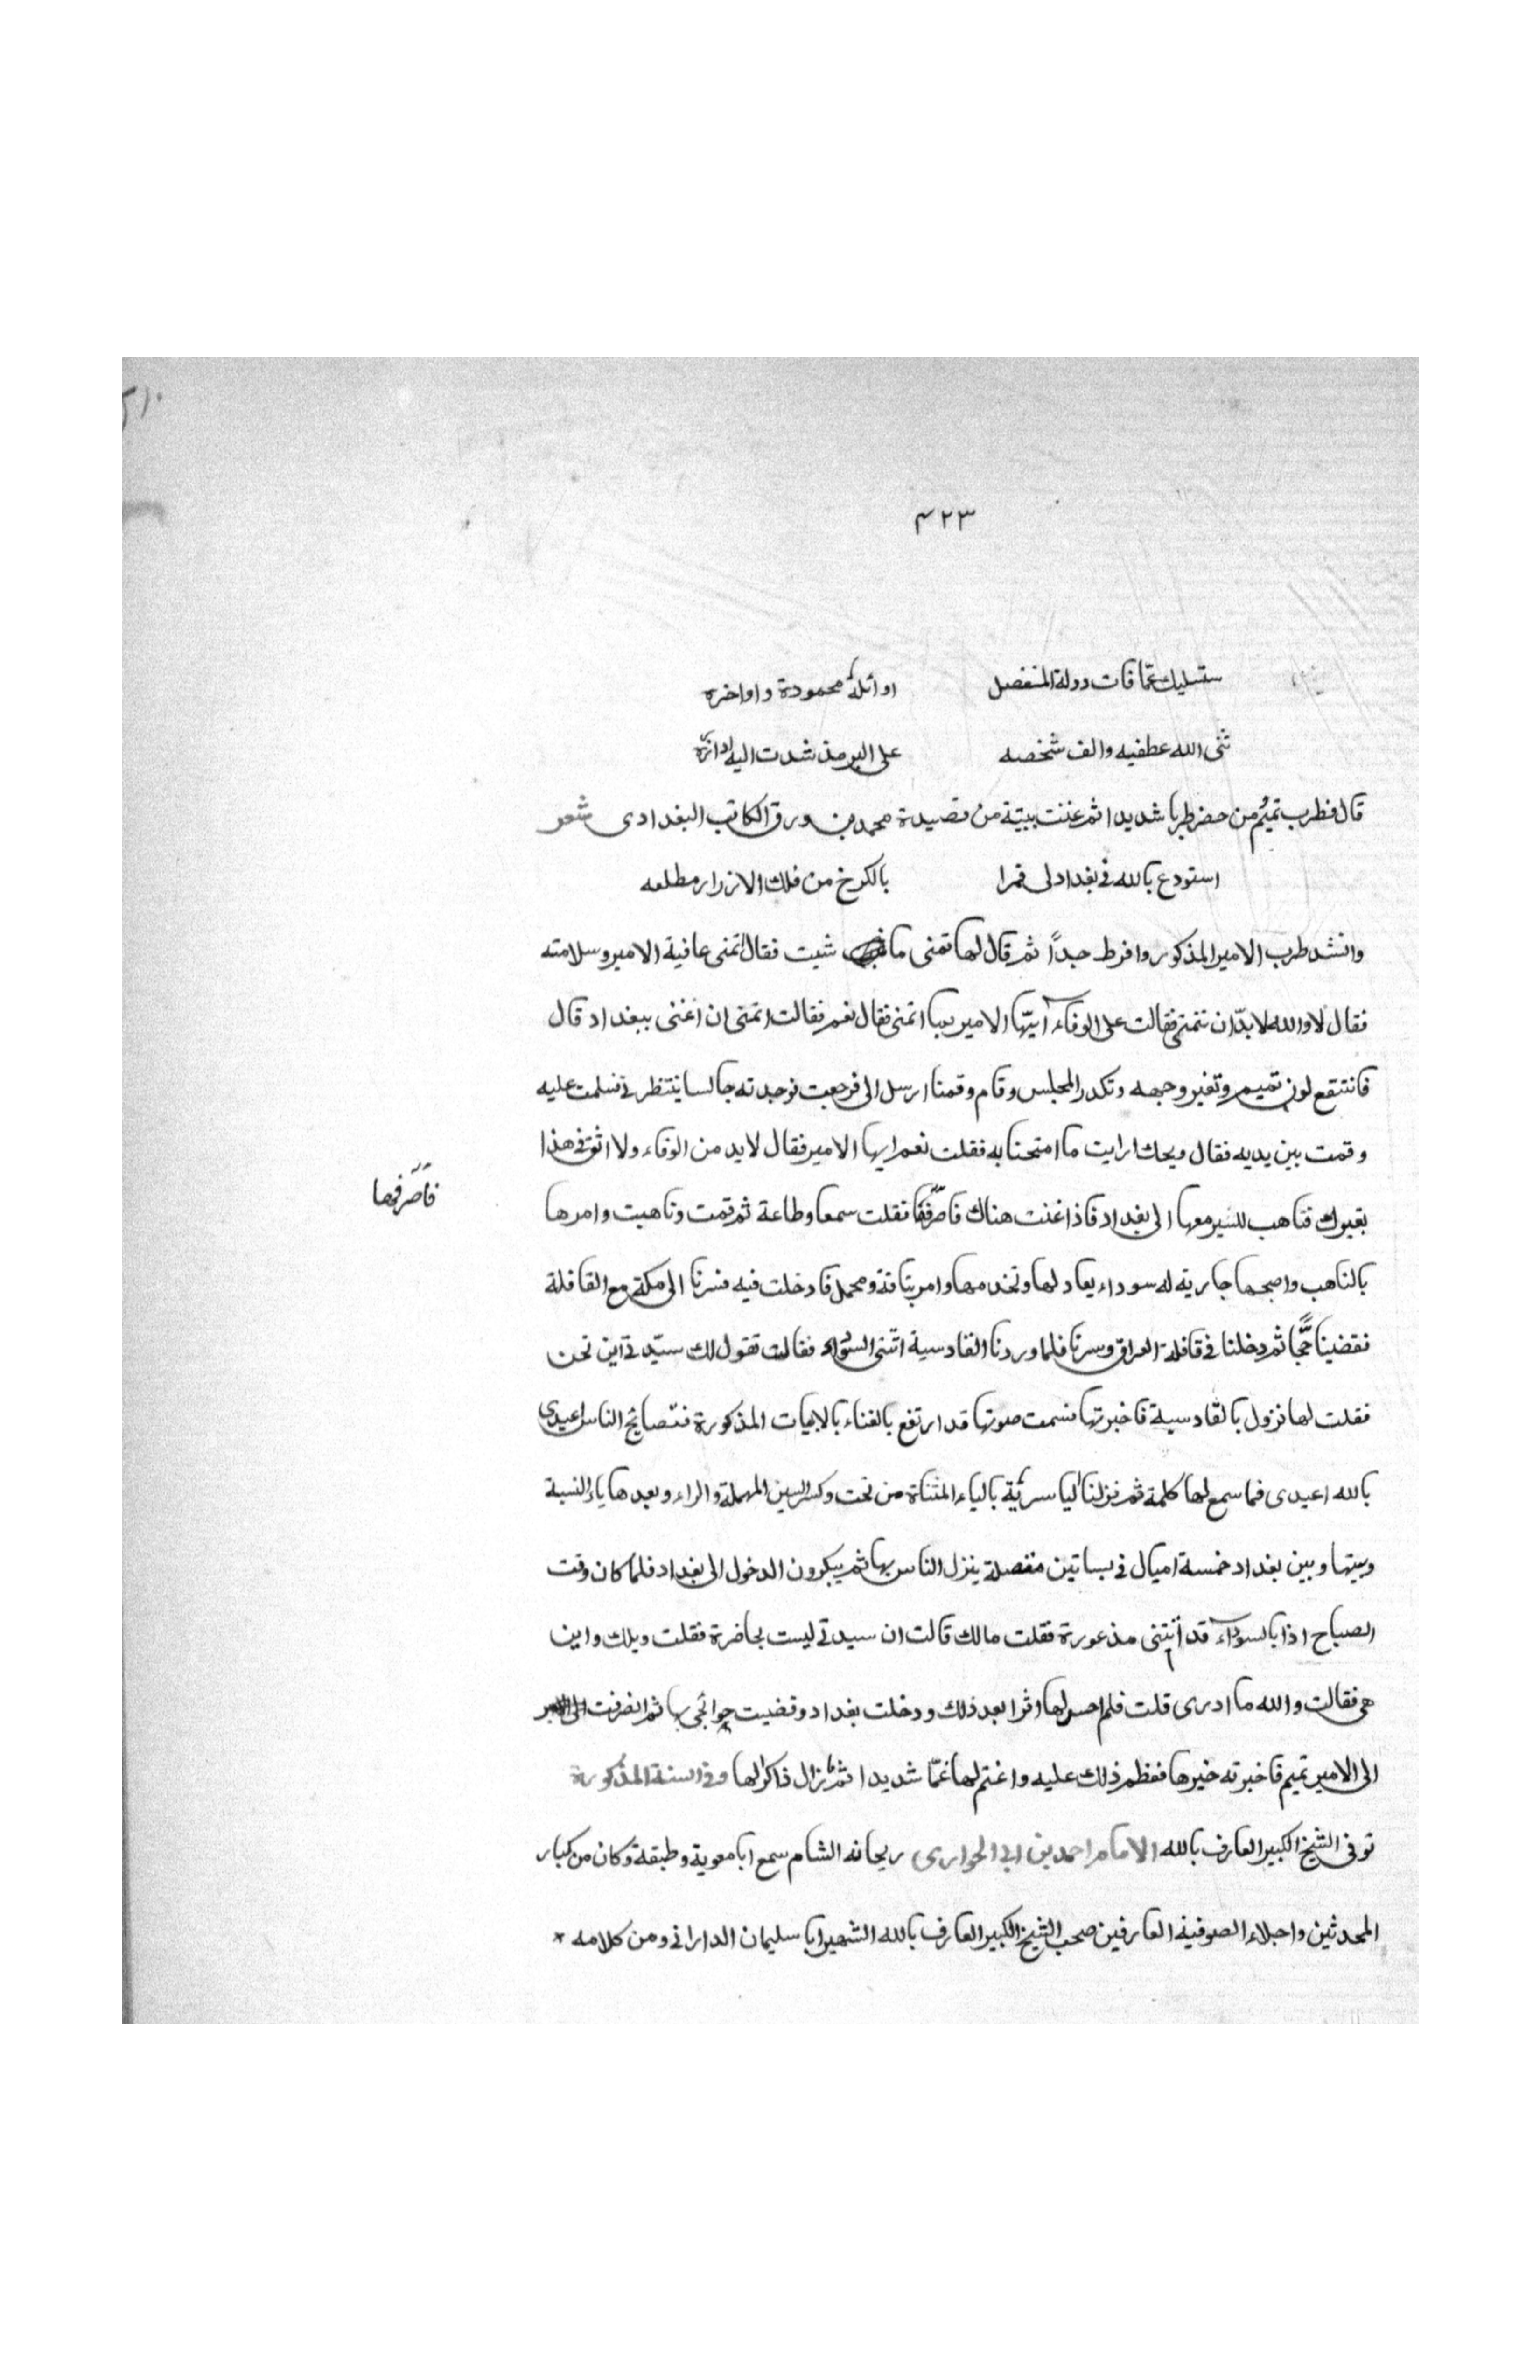 ٤٢٣
ستسليك عمّا فات دولة المنفصل اوائله محمودة واواخره
ثنى الله عطفيه والف شخصه على البر مذ شدت اليه اداتره
قال فطرب تميم من حضر طربا شديدا ثم غنت ببيتة من قصيدة محمد بن ورق الكاتب البغدادى شعر
استودع بالله فى بغداد لى قمرا بالكرخ من فلك الازرار مطلعه
وانشد طرب الامير المذكور وافرط جدًا ثم قال لها تمنى ما شيت فقال اتمنى عافية الامير وسلامته
فقال لا والله لا بدّ ان تتمنى فقالت على الوفاء ايّها الامير بما اتمنى فقال نعم فقالت اتمنى ان اغنى ببغداد قال
فانتقع لون تميم وتغير وجهه وتكدر المجلس وقام وقمنا ارسل الى فرجعت فوجدته جالسا ينتظر نى فسلمت عليه
وقمت بين يديه فقال ويحك ارايت ما امتحنا به فقلت نعم ايها الامير فقال لا بد من الوفاء ولا اثق فى هذا
بغيرك فتاهب للسير معها الى بغداد فاذا غنت هناك فاصرفها فقلت سمعا وطاعة ثم قمت وتاهبت وامرها
فاصرفها
بالتاهب واصحبها جارية له سوداء يعاد لها وتخدمها وامر بناقة ومحمل فادخلت فيه فسرنا الى مكة مع القافلة
فقضينا حجًّا ثم دخلنا فى قافلة العراق وسرنا فلما وردنا القادسية اتتنى السوداء فقالت تقول لك سيّد تى اين نحن
فقلت لها نزول بالقادسية فاخبرتها فسمعت صوتها قد ارتفع بالغناء بالابيات المذكورة فتصايح الناس اعيدى
بالله اعيدى فما سمع لها كلمة ثم نزلنا الياسرية بالياء المثناة من تحت وكسر السين المهملة والراء وبعدها ياء النسبة
وبينها وبين بغداد خمسة اميال فى بساتين متصلة ينزل الناس بها ثم يبكرون الدخول الى بغداد فلما كان وقت
الصباح اذا بالسوداء قد اتتنى مذعورة فقلت مالك قالت ان سيدتى ليست بحاضرة فقلت ويلك واين
هى فقالت والله ما ادرى قلت فلم احس لها اثرا بعد ذلك ودخلت بغداد وقضيت حوائجى بها ثم انصرفت
الى الامير تميم فاخبرته خبرها فعظم ذلك عليه واغتم لها غمّا شديدا ثم مازال ذاكرا لها وفى السنة المذكورة
توفى الشيخ الكبير العارف بالله الامام احمد بن ابى الحوارى ريحانه الشام سمع ابا معوية وطبقة وكان من كبار
المحدثين واجلاء الصوفية العارفين صحب الشيخ الكبير العارف بالله الشهير ابا سليمان الدارانى ومن كلامه *